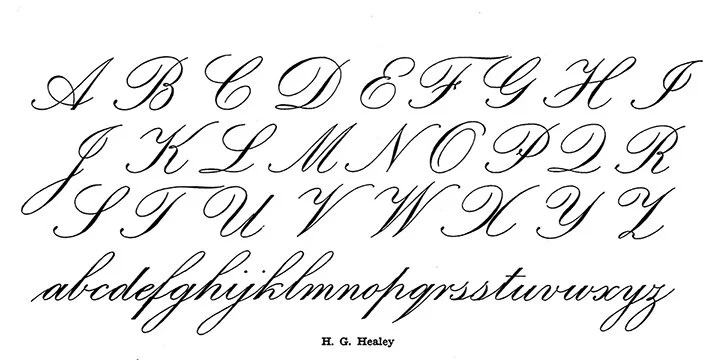 A B C D E F G H I
J K L M N O P Q R
S T U V W X Y Z
abcdefghijklmnopqrsstuvwxyz
H. G. Healey